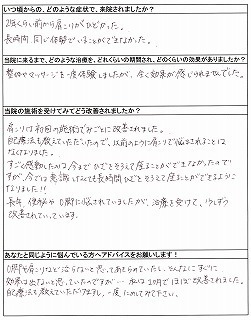 いつ頃からの、どのような症状で、来院されましたか？
2ヶ月くらい前から肩こりがひどかった。
長時間、同じ体勢でいることができなかった。
当院に来るまで、どのような治療を、どれくらいの期間され、どのくらいの効果がありましたか？
整体やマッサージを一度体験しましたが、全く効果が感じられませんでした。
当院の施術を受けてみてどう改善されましたか？
肩こりは初回の施術でみごとに改善されました。
自己療法も教えていただいたので、以前のように肩こりで悩まされることは
なくなりました。
すごく感動したのは今までひざをそろえて座ることができなかったので
すが、今では意識しなくても長時間ひざをそろえて座ることができるように
なりました!!
長年、便秘やO脚に悩まされていましたが、治療を受けて、少しずつ
改善されています。
あなたと同じように悩んでいる方へアドバイスをお願いします！
O脚や肩こりなど治らないと思ってあきらめていたし、そんなにすぐに
効果は出ないと思っていたのですが…私は10月でほぼ改善されました。
自己療法も教えていただけますし、一度ためしてみて下さい。